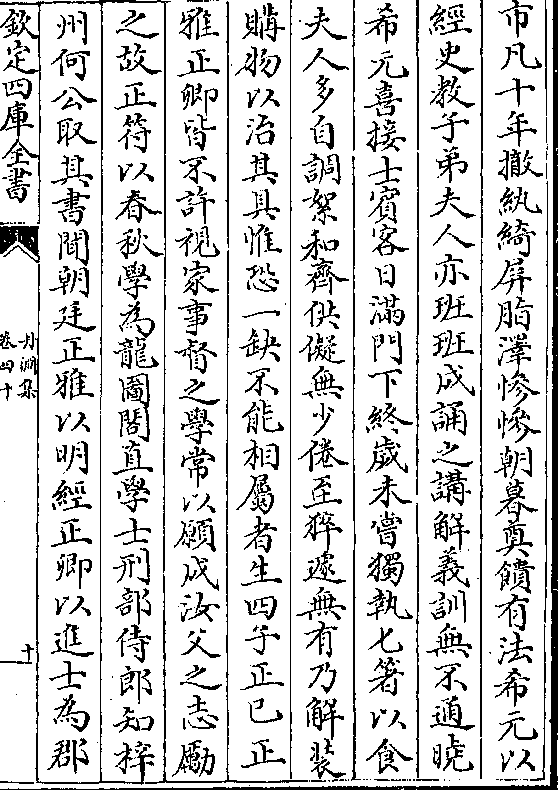 市凡十年撤紈綺屏脂澤慘慘朝暮奠饋有法希元以
經史教子弟夫人亦班班成誦之講解義訓無不通曉
希元喜接士賓客日滿門下終歲未嘗獨執匕箸以食
夫人多自調絮和齊供儗無少倦至猝遽無有乃解裝
購物以治其具惟恐一缺不能相屬者生四子正已正
雅正卿皆不許視家事督之學常以願成汝父之志勵
之故正符以春秋學為龍圖閣直學士刑部侍郎知梓
州何公取其書聞朝廷正雅以明經正卿以進士為郡
欽定四庫全書
丹淵集
卷四十
十